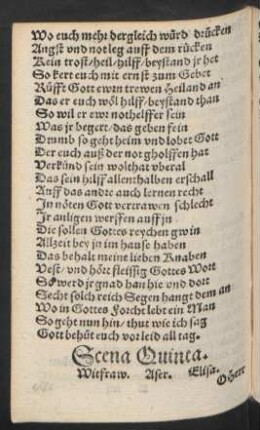 Wo euch mehr dergleich würd drücken
Angst vnd not leg auff dem rücken
Kein trost/heil/hilff/beystand jr het
So kert euch mit ernst zum Gebet
Rüfft Gott ewrn trewen Heiland an
Das er euch wöl hilff/beystand than
So wil er ewr nothelffer sein
Was jr begert/das geben fein
Drumb so geht heim vnd lobet Gott
Der euch auß der not gholffen hat
Verkünd sein wolthat vberal
Das sein hilff allenthalben erschall
Auff das andre auch lernen recht
In nöten Gott vertrawen schlecht
Ir anligen werffen auff jn
Die sollen Gottes reychen gwin
Allzeit bey jn im hause haben
Das behalt meine lieben Knaben
Vest/vnd hört fleissig Gottes Wort
So werd jr gnad han hie vnd dort
Secht solch reich Segen hangt dem an
Wo in Gottes Forcht lebt ein Man
So geht nun hin/thut wie ich sag
Gott behüt euch vor leid all tag.
Scena Quinta.
Witfraw. Aser. Elisa.
O Herr